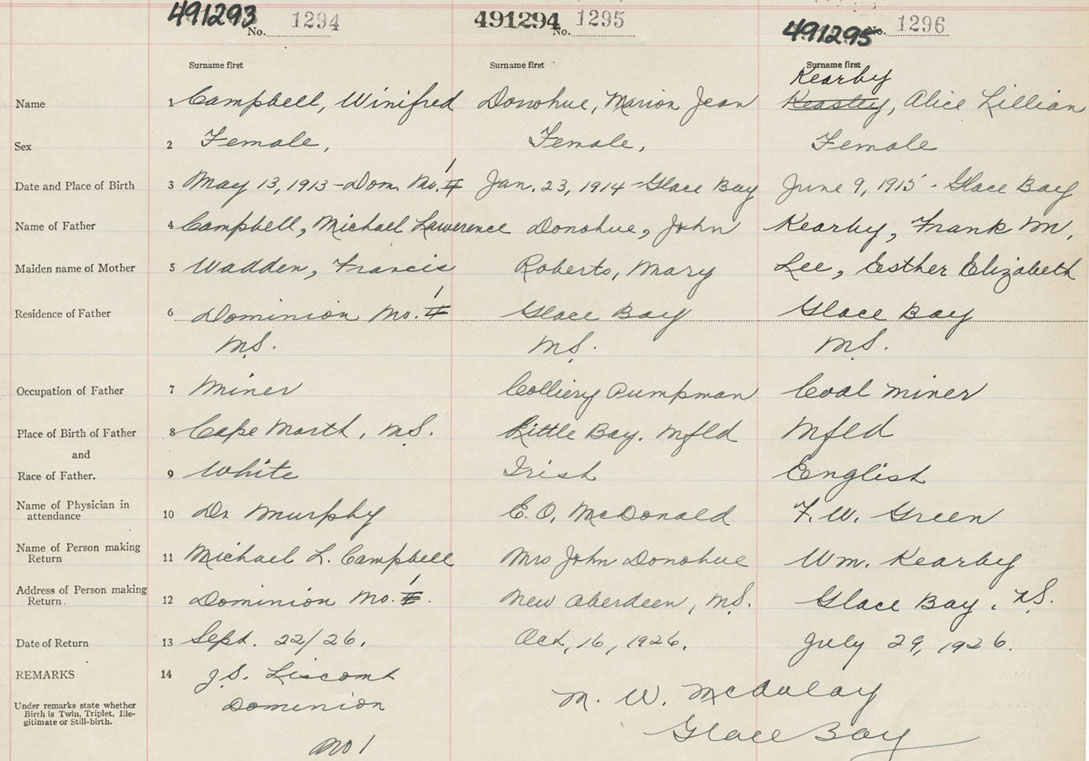 491293 No. 1294 491294 No. 1295 491295 No. 1296
Surname first Surname first Surname first
Kearby
Name 1 Campbell, Winifred Donohue, Marion Jean Keasley, Alice Lillian
Sex 2 Female, Female, Female
Date and Place of Birth 3 May 13, 1913 - Dom. No. 1 Jan. 23, 1914 - Glace Bay June 9, 1915 - Glace Bay
Name of Father 4 Campbell, Michael Lawerence Donohue, John Kearby, Frank M.
Maiden name of Mother 5 Wadden, Francis Roberts, Mary Lee, Esther Elizabeth
Residence of Father 6 Dominion No. 1 Glace Bay Glace Bay
N.S. N.S. N.S.
Occupation of Father 7 Miner Colliery Pumpman Coal Miner
Place of Birth of Father 8 Cape North, N.S. Little Bay. Nfld Nfld
and
Race of Father. 9 White Irish English
Name of Physician in attendance 10 Dr Murphy E. O. McDonald F. W. Green
Name of Person making Return 11 Michael L. Campbell Mrs John Donohue Wm. Kearby
Address of Person making Return 12 Dominion No. 1. New Aberdeen, N.S. Glace Bay, N.S.
Date of Return 13 Sept. 22/26. Oct, 16, 1926. July 29, 1926.
REMARKS 14 J.S. Liscomb M. W. McAulay
Under remarks state whether Birth is Twin, Triplet, Ille-gitimate or Still-birth. Dominion Glace Bay
No 1